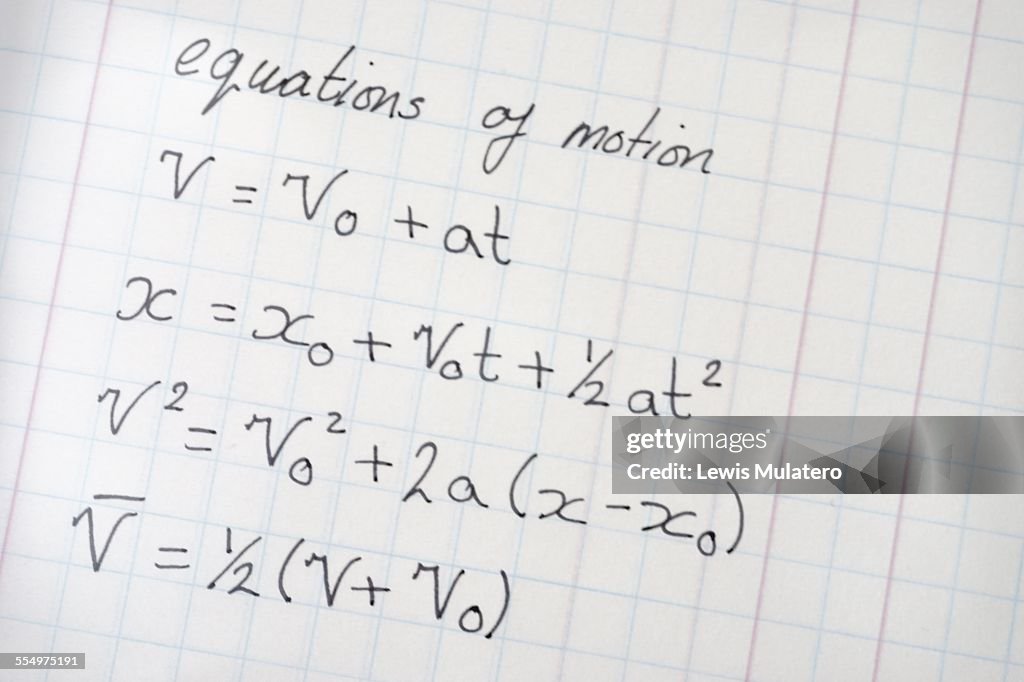 equations of motion
V = V₀ + at
x = x₀ + V₀t + ½ at²
V² = V₀² + 2a (x - x₀)
V̅ = ½ (V + V₀)
gettyimages®
Lewis Mulatero
554975191